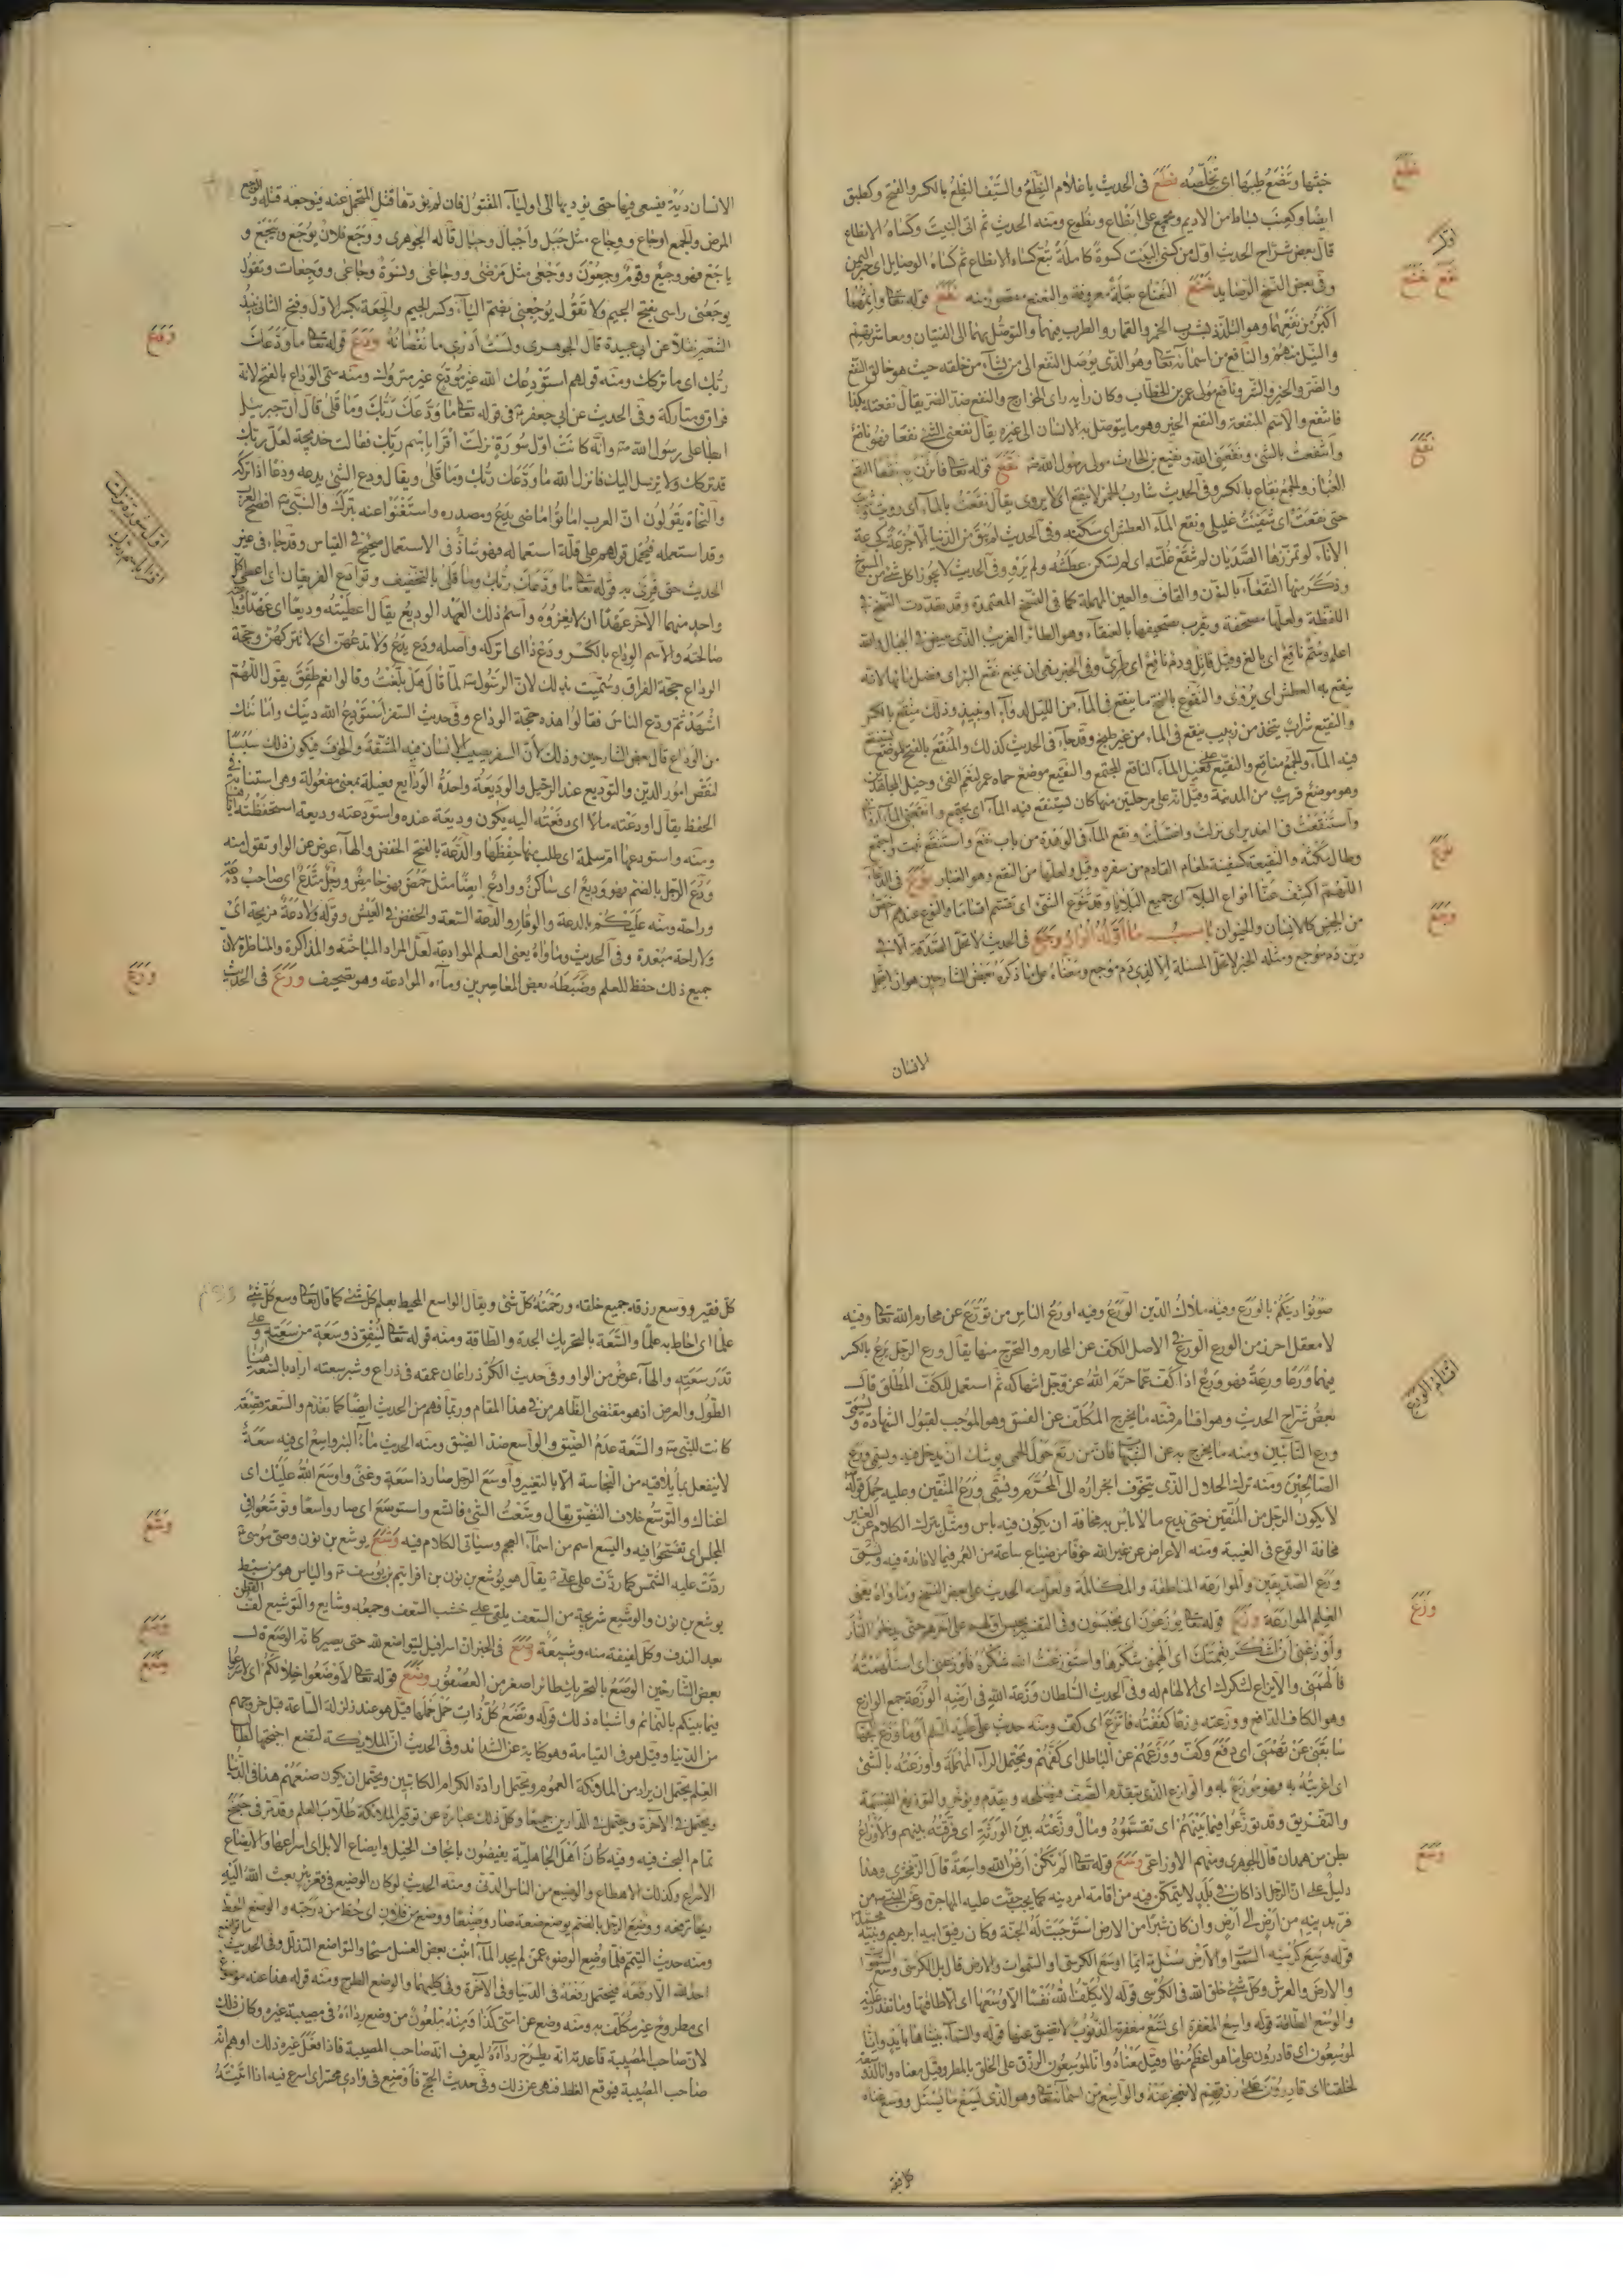 خبثها وتنصع طيبها اى تخلصه نطع فى الحديث يا غلام النطع والسيف النطع بالكسر والفتح وكطبق
ايضا وكعنب بساط من الاديم ويجمع على انطاع ونطوع ومنه الحديث ثم اتى البيت وكساه الانطاع
قال بعض شراح الحديث اول من كسى البيت كسوة كاملة تبع كساه الانطاع ثم كساه الوصايل اى حبر اليمن
وفى بعض النسخ الوصايد نعنع النعناع بقلة معروفة والنعنع مقصور منه نفع قوله تعا واثمهما
اكبر من نفعهما وهو التلذذ بشرب الخمر والقمار والطرب فيهما والتوصل بهما الى الفتيان ومعاشرتهم
والنيل منهم والنافع من اسمائه تعا وهو الذى يوصل النفع الى من يشاء من خلقه حيث هو خالق النفع
والضر والخير والشر ونافع مولى عمر بن الخطاب وكان رايه راى الخوارج والنفع ضد الضر يقال نفعته بكذا
فانتفع والاسم المنفعة والنفع الخير وهو ما يتوصل به الانسان الى غيره يقال نفعنى الشئ نفعا فهو نافع
وانتفعت بالشئ ونفعنى الله ونفيع بن الحارث مولى رسول الله نقع قوله تعا فاثرن به نقعا النقع
الغبار والجمع نقاع بالكسر وفى الحديث شارب الخمر لا ينقع اى لا يروى يقال نقعت بالماء اى رويت
حتى نقعت اى شفيت غليلى ونقع الماء العطش اى سكنه وفى الحديث لم يبق من الدنيا الا جرعة كجرعة
الاناء لو تمززها الصديان لم تنقع غلته اى لم يسكن عطشه ولم يرو وفى الحديث لا يجوز اكل شئ من المسوخ
وذكر منها النقعاء بالنون والقاف والعين المهملة كما فى النسخ المعتمدة وقد تعددت النسخ فى
اللفظة ولعلها مصحفة ويقرب تصحيفها بالعنقاء وهو الطائر الغريب الذى يبيض فى الجبال والله
اعلم وسم ناقع اى بالغ وقيل قاتل ودم ناقع اى طرى وفى الخبر نهى ان يمنع نقع البئر اى فضل مائها لانه
ينقع به العطش اى يروى والنقوع بالفتح ما ينقع فى الماء من الليل لدواء او نبيذ وذلك منقع بالكسر
والنقيع شراب يتخذ من زبيب ينقع فى الماء من غير طبخ وقد جاء فى الحديث كذلك والمنقع بالفتح الموضع يستنقع
فيه الماء والجمع مناقع والنقيع على فعيل الماء الناقع المجتمع والنقيع موضع حماه عمر لنعم الفئ وخيل المجاهدين
وهو موضع قريب من المدينة وقيل انه على مرحلتين منها كان يستنقع فيه الماء اى يجتمع
واستنقعت فى الغدير اى نزلت واغتسلت ونقع الماء فى الوهدة من باب نفع واستنقع ثبت واجتمع
وطال مكثه والنقيعة كسفينة طعام القادم من سفره وقيل ولعلها من النقع وهو الغبار نوع فى الدعاء
اللهم اكشف عنا انواع البلاء اى جميع البلايا وقد تنوع الشئ اى تقسم اقساما والنوع عندهم اخص
من الجنس كالانسان والحيوان باب ما اوله الواو وجع فى الحديث لا تحل الصدقة الا فى
دين دم موجع ومثله الخبر لا تحل المسئلة الا لذى دم موجع ومعناه على ما ذكره بعض الشارحين هو ان يتحمل
الانسان
نطع
نعنع نفع
نقع
نوع
وجع
الانسان دية يسعى فيها حتى يؤديها الى اولياء المقتول فان لم يؤدها قتل المتحمل عنه فيوجعه قتله والوجع
المرض والجمع اوجاع ووجاع مثل جبل واجبال وجبال قاله الجوهرى ووجع فلان يوجع وييجع و
ياجع فهو وجع وقوم وجعون ووجعى مثل مرضى ووجاعى ونسوة وجاعى ووجعات وتقول
يوجعنى راسى بفتح الجيم ولا تقول يوجعنى بضم الياء وكسر الجيم والجعة بكسر الاول وفتح الثانى نبيذ
الشعير نقلا عن ابى عبيدة قال الجوهرى ولست ادرى ما نقصانه ودع قوله تعا ما ودعك
ربك اى ما تركك ومنه قولهم استودعك الله غير مودع غير متروك ومنه سمى الوداع بالفتح لانه
فراق ومتاركة وفى الحديث عن ابى جعفر فى قوله تعا ما ودعك ربك وما قلى قال ان جبرئيل
ابطا على رسول الله وانه كانت اول سورة نزلت اقرا باسم ربك فقالت خديجة لعل ربك
قد تركك ولا يرسل اليك فانزل الله ما ودعك ربك وما قلى ويقال ودع الشئ يدعه ودعا اذا تركه
والنحاة يقولون ان العرب اماتوا ماضى يدع ومصدره واستغنوا عنه بترك والنبى افصح العرب
وقد استعمله فيحمل قولهم على قلة استعماله فهو شاذ فى الاستعمال صحيح فى القياس وقد جاء فى غير
الحديث حتى قرئ به قوله تعا ما ودعك ربك وما قلى بالتخفيف وتوادع الفريقان اى اعطى كل
واحد منهما الآخر عهدا ان لا يغزوه واسم ذلك العهد الوديع يقال اعطيته وديعا اى عهدا
صالحته والاسم الوداع بالكسر ودع ذا اى اتركه واصله ودع يدع ولا تدعهن اى لا تتركهن وحجة
الوداع حجة الفراق وسميت بذلك لان الرسول لما قال هل بلغت وقالوا نعم طفق يقول اللهم
اشهد ثم ودع الناس فقالوا هذه حجة الوداع وفى حديث السفر استودع الله دينك وامانتك
من الوداع قال بعض الشارحين وذلك لان السفر يصيب الانسان فيه المشقة والخوف فيكون ذلك سببا
لنقص امور الدين والتوديع عند الرحيل والوديعة واحدة الودايع فعيلة بمعنى مفعولة وهى استنابة فى
الحفظ يقال اودعته مالا اى دفعته اليه يكون وديعة عنده واستودعته وديعة استحفظته اياها
ومنه واستودعها ام سلمة اى طلب منها حفظها والدعة بالفتح الخفض والهاء عوض عن الواو تقول منه
ودع الرجل بالضم فهو وديع اى ساكن ووادع ايضا مثل حمض فهو حامض ورجل متدع اى صاحب دعة
وراحة ومنه عليكم بالدعة والوقار والدعة السعة والخفض فى العيش وقوله ولا دعة مزيحة اى
ولا راحة مبعدة وفى الحديث وما واه يعنى العلم الموادعة لعل المراد المباحثة والمذاكرة والمناظرة لان
جميع ذلك حفظ للعلم وضبطه بعض المعاصرين وماء الموادعة وهو تصحيف ورع فى الحديث
ودع
اول سورة نزلت
اقرا باسم ربك
ورع
صونوا دينكم بالورع وفيه ملاك الدين الورع وفيه اورع الناس من تورع عن محارم الله تعا وفيه
لا معقل احرز من الورع الورع فى الاصل الكف عن المحارم والتحرج منها يقال ورع الرجل يرع بالكسر
فيهما ورعا ورعة فهو ورع اذا كف عما حرم الله عز وجل انتهاكه ثم استعمل للكف المطلق قال
بعض شراح الحديث وهو اقسام فمنه ما يخرج المكلف عن الفسق وهو الموجب لقبول الشهادة ويسمى
ورع التائبين ومنه ما يخرج به عن الشبهات فان من رتع حول الحمى يوشك ان يدخل فيه ويسمى ورع
الصالحين ومنه ترك الحلال الذى يتخوف انجراره الى المحرم ويسمى ورع المتقين وعليه حمل قوله
لا يكون الرجل من المتقين حتى يدع ما لا باس به مخافة ان يكون فيه باس ومثل بترك الكلام عن الغير
مخافة الوقوع فى الغيبة ومنه الاعراض عن غير الله خوفا من ضياع ساعة من العمر فيما لا فائدة فيه ويسمى
ورع الصديقين والموارعة المناطقة والمكالمة ولعل منه الحديث على بعض النسخ وما واه يعنى
العلم الموارعة وزع قوله تعا يوزعون اى يحبسون وفى التفسير يحبس اولهم على آخرهم حتى يدخلوا النار
واوزعنى ان اشكر نعمتك اى الهمنى شكرها واستوزعت الله شكره فاوزعنى اى استلهمته
فالهمنى والايزاع لشكرك اى الالهام له وفى الحديث السلطان وزعة الله فى ارضه الوزعة جمع الوازع
وهو الكاف الدافع ووزعته وزعا كففته فاتزع اى كف ومنه حديث على عليه السلم او ما وزع الجهال
سابقتى عن تهمتى اى دفع وكف ووزعهم عن الباطل اى كفهم ويحتمل الراء المهملة واوزعته بالشئ
اى اغريته به وهو موزع به والوازع الذى يتقدم الصف فيصلحه ويقدم ويؤخر والتوزيع القسمة
والتفريق وقد توزعوا فيما بينهم اى تقسموه ومال وزعته بين الورثة اى فرقته بينهم والاوزاع
بطن من همدان قال الجوهرى ومنهم الاوزاعى وسع قوله تعا الم تكن ارض الله واسعة قال الزمخشرى وهذا
دليل على ان الرجل اذا كان فى بلد لا يتمكن فيه من اقامة امر دينه كما يجب حقت عليه المهاجرة وعن النبى من
فر بدينه من ارض الى ارض وان كان شبرا من الارض استوجبت له الجنة وكان رفيق ابيه ابرهيم ونبيه محمد
قوله وسع كرسيه السموات والارض سئل ايما اوسع الكرسى او السموات والارض قال بل الكرسى وسع السموات
والارض والعرش وكل شئ خلق الله فى الكرسى قوله لا يكلف الله نفسا الا وسعها اى الا طاقتها وما تقدر عليه
والوسع الطاقة قوله واسع المغفرة اى تسع مغفرته الذنوب لا تضيق عنها قوله والسماء بنيناها بايد وانا
لموسعون اى قادرون على ما هو اعظم منها وقيل معناه وانا لموسعون الرزق على الخلق بالمطر وقيل معناه وانا لذو سعة
لخلقنا اى قادرون على رزقهم لا نعجز عنه والواسع من اسمائه تعا وهو الذى يسع ما يسئل ووسع غناه
كل فقير
اقسام الورع
وزع
وسع
كل فقير ووسع رزقه جميع خلقه ورحمته كل شئ ويقال الواسع المحيط بعلم كل شئ كما قال تعا وسع كل شئ
علما اى احاط به علما والسعة بالتحريك الجدة والطاقة ومنه قوله تعا لينفق ذو سعة من سعته و على
قدر سعته والهاء عوض من الواو وفى حديث الكر ذراعان عمقه فى ذراع وشبر سعته اراد بالسعة هنا
الطول والعرض اذ هو مقتضى الظاهر من فى هذا المقام وربما فهم من الحديث ايضا كما تقدم والسعة قصعة
كانت للنبى والسعة عدم الضيق والواسع ضد الضيق ومنه الحديث ماء البئر واسع اى فيه سعة
لا ينفعل بما يلاقيه من النجاسة الا بالتغيير واوسع الرجل صار ذا سعة وغنى واوسع الله عليك اى
اغناك والتوسع خلاف التضيق يقال وسعت الشئ فاتسع واستوسع اى صار واسعا وتوسعوا فى
المجلس اى تفسحوا فيه واليسع اسم من اسماء العجم وسيأتى الكلام فيه وشع يوشع بن نون وصى موسى
ردت عليه الشمس كما ردت على على يقال هو يوشع بن نون بن افراثيم بن يوسف والياس هو من سبط
يوشع بن نون والوشيع شريجة من السعف يلقى على خشب السقف وجمعه وشايع والتوشيع لف القطن
بعد الندف وكل لفيفة منه وشيعة وصع فى الخبر ان اسرافيل ليتواضع لله حتى يصير كانه الوصع قال
بعض الشارحين الوصع بالتحريك طائر اصغر من العصفور وضع قوله تعا لاوضعوا خلالكم اى اسرعوا
فيما بينكم بالنمائم واشباه ذلك قوله وتضع كل ذات حمل حملها قيل هو عند زلزلة الساعة قبل خروجهم
من الدنيا وقيل هو فى القيامة وهو كناية عن الشدائد وفى الحديث ان الملائكة لتضع اجنحتها لطالب
العلم يحتمل ان يراد من الملائكة العموم ويحتمل ارادة الكرام الكاتبين ويحتمل ان يكون صنعهم هذا فى الدنيا
ويحتمل فى الآخرة ويحتمل فى الدارين جميعا وكل ذلك عبارة عن توقير الملائكة طلاب العلم وقد مر فى جنح
تمام البحث فيه وفيه كان اهل الجاهلية يفيضون بايجاف الخيل وايضاع الابل اى اسراعها والايضاع
الاسراع وكذلك الاهطاع والوضيع من الناس الدنى ومنه الحديث لو كان الوضيع فى قعر بئر بعث الله اليه
ريحا ترفعه ووضع الرجل بالضم يوضع ضعة صار وضيعا ووضع من فلان اى حط من درجته والوضع الحط
ومنه حديث التيمم فلما وضع الوضوء عمن لم يجد الماء اثبت بعض الغسل مسحا والتواضع التذلل وفى الحديث ما تواضع
احد لله الا رفعه فيحتمل رفعه فى الدنيا وفى الآخرة وفى كليهما والوضع الطرح ومنه قوله هذا عنه موضوع
اى مطروح غير مكلف به ومنه وضع عن امتى كذا ومنه ملعون من وضع رداءه فى مصيبة غيره وكان ذلك
لان صاحب المصيبة قاعدته انه يطرح رداءه ليعرف انه صاحب المصيبة فاذا فعل غيره ذلك اوهم انه
صاحب المصيبة فيوقع الغلط فنهى عن ذلك وفى حديث الحج فاوضع فى وادى محسر اى اسرع فيه اذا اتيته
وشع
وصع
وضع